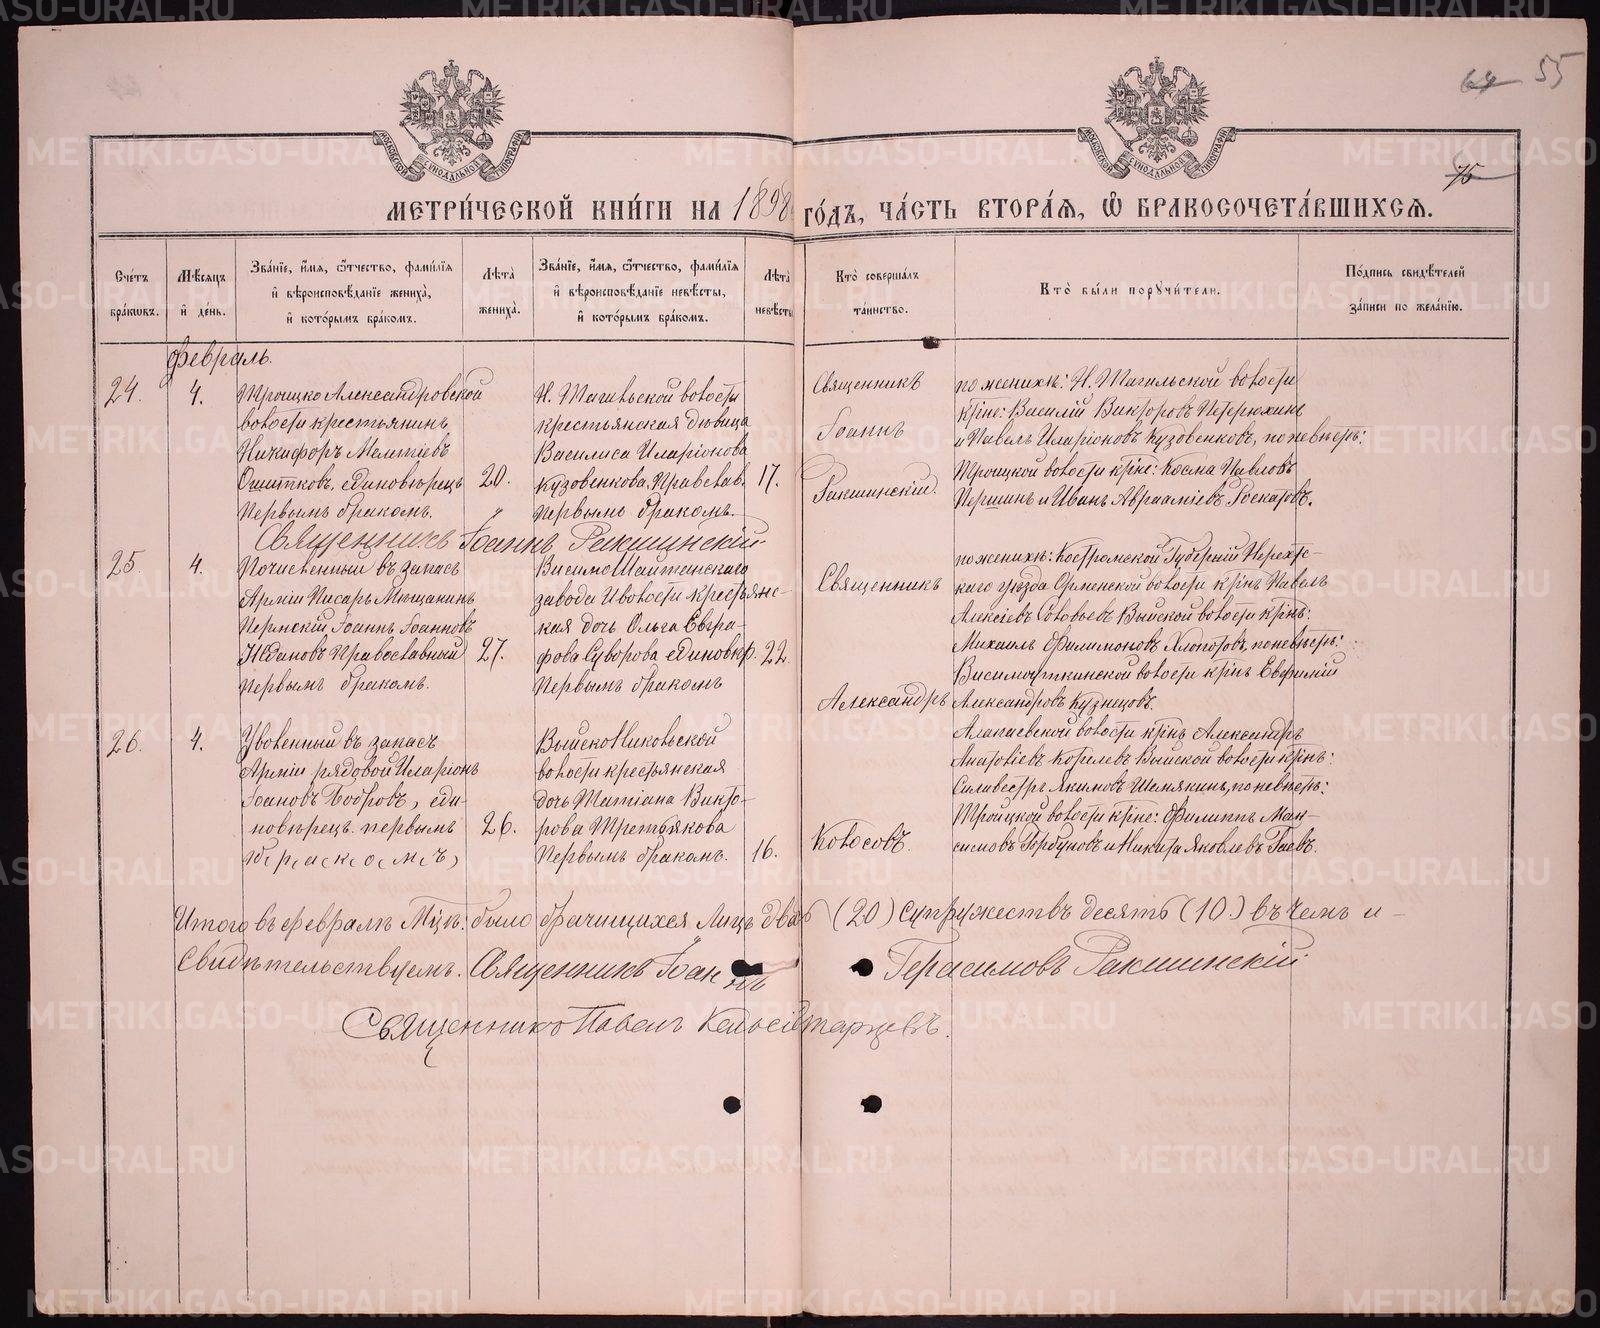 64 55
75
МОСКОВСКОЙ СѴНОДАЛЬНОЙ ТИПОГРАФІИ
МОСКОВСКОЙ СѴНОДАЛЬНОЙ ТИПОГРАФІИ
МЕТРИ́ЧЕСКОЙ КНИ́ГИ НА 1898 ГО́ДЪ, ЧА́СТЬ ВТОРА́Ѧ, Ѽ БРАКОСОЧЕТА́ВШИХСѦ.
Сче́тъ бра́кѡвъ.
Мѣ́сѧцъ и҆ де́нь.
Зва́нїе, и҆́мѧ, ѻ҆́тчество, фами́лїѧ и҆ вѣроисповѣ́данїе жениха̀, и҆ кото́рымъ бра́комъ.
Лѣ́та жениха̀.
Зва́нїе, и҆́мѧ, ѻ҆́тчество, фами́лїѧ и҆ вѣроисповѣ́данїе невѣ́сты, и҆ кото́рымъ бра́комъ.
Лѣ́та невѣ́сты
Кто̀ соверша́лъ та́инство.
Кто̀ бы́ли порꙋчи́тели.
По́дпись свидѣ́телей за́писи по жела́нїю.
Февраль.
24. 4.
Троицко Александровской
волости крестьянинъ
Никифоръ Мелетіевъ
единовѣрецъ 20.
первымъ бракомъ.
Н. Тагильской волости
крестьянская дѣвица
Василиса Иларіонова
Кузовенкова, Правслав. 17.
первымъ бракомъ.
Священникъ
Іоаннъ
Ракшинскій.
по женихѣ: Н. Тагильской волости
кр̃не: Василій Викторовъ Петерюхинъ
и Павелъ Иларіоновъ Кузовенковъ, по невѣстѣ:
Троицкой волости кр̃не: Косма Павловъ
Першинъ и Иванъ Аврааміевъ
Священникъ Іоаннъ Ракшинскій
25. 4.
въ запасъ
Арміи Писарь Мѣщанинъ
Пермскій Іоаннъ Іоанновъ
Ждановъ Православный 27.
первымъ бракомъ.
Висимо Шайтанскаго
завода и волости крестьянс-
кая дочь Ольга Евгра-
фова Суворова единовѣр. 22
первымъ бракомъ
Священникъ
Александръ
по женихѣ: Костромской Губерніи Нерехтс-
каго уѣзда волости кр̃нъ Павелъ
Алексіевъ Соловьевъ Выйской волости кр̃нъ:
Михаилъ Филимоновъ Хлопотовъ, по невѣстѣ:
Висимоуткинской волости кр̃нъ Евфимій
Александровъ Кузнецовъ.
26. 4.
Уволенный въ запасъ
Арміи рядовой Иларіонъ
Іоановъ Бобровъ, еди-
новѣрецъ первымъ 26.
бракомъ,
ВыйскоНикольской
волости крестьянская
дочь Татіана Викто-
рова Третьякова
первымъ бракомъ. 16.
Колосовъ.
Алапаевской волости кр̃нъ Александръ
Анатоліевъ Королевъ Выйской волости кр̃нъ:
Силивестръ Якимовъ Шемякинъ, по невѣстѣ:
Троицкой волости кр̃не: Филиппъ Мак-
симовъ Горбуновъ и Никита Яковлевъ Гаевъ.
Итого въ февралѣ Мц̃ѣ: было брачищихся лицъ два (20) супружествъ десять (10.) въ чемъ и -
Свидѣтельствуемъ. Священникъ Іоаннъ Герасимовъ Ракшинскій
Священникъ Павелъ
METRIKI.GASO-URAL.RU